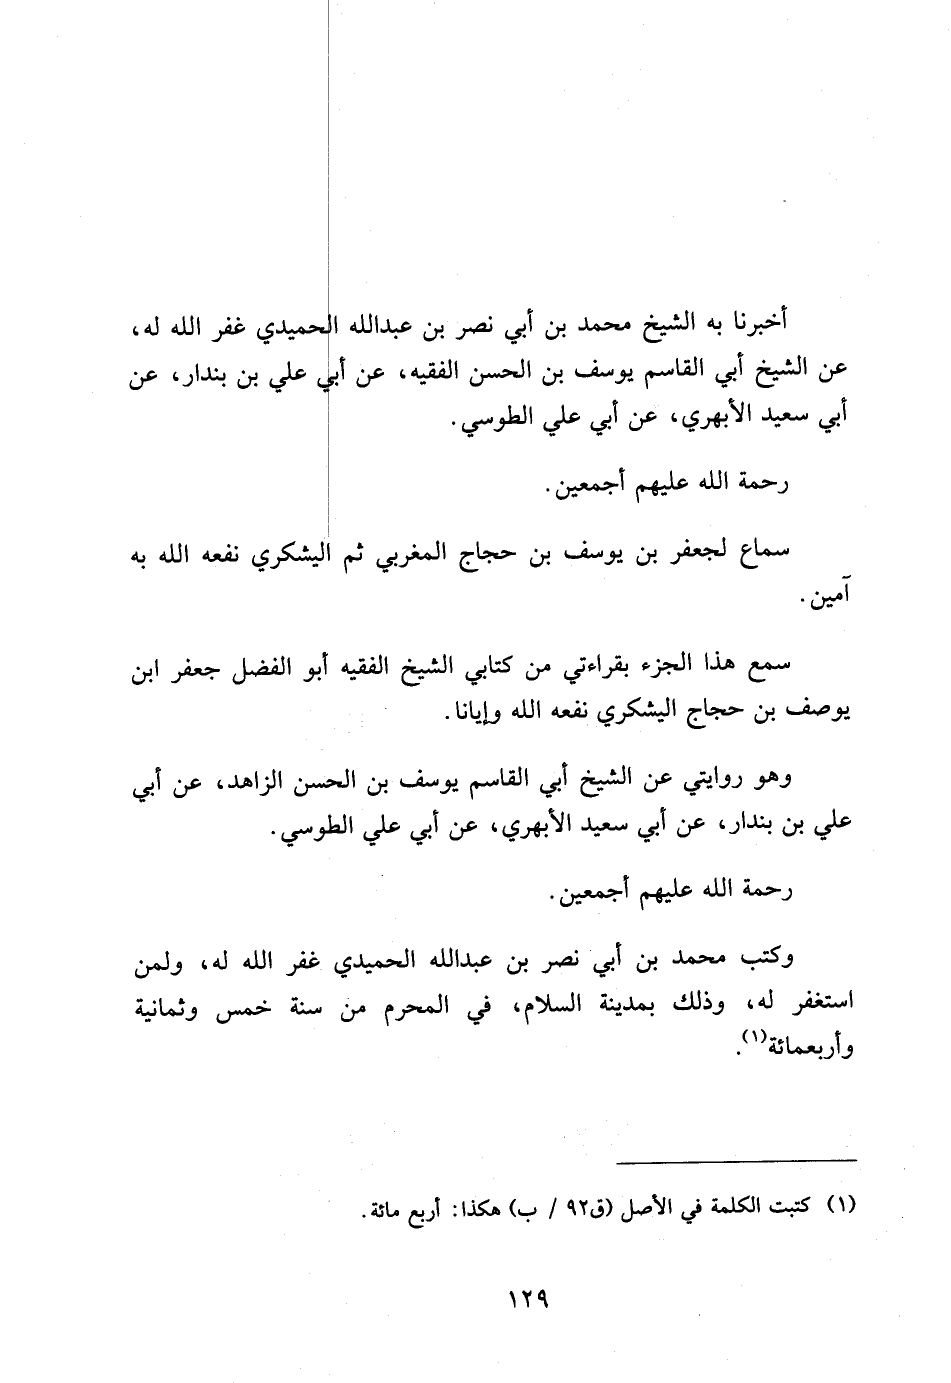 أخبرنا به الشيخ محمد بن أبي نصر بن عبدالله الحميدي غفر الله له،
عن الشيخ أبي القاسم يوسف بن الحسن الفقيه، عن أبي علي بن بندار، عن
أبي سعيد الأبهري، عن أبي علي الطوسي.
رحمة الله عليهم أجمعين.
سماع لجعفر بن يوسف بن حجاج المغربي ثم اليشكري نفعه الله به
آمين.
سمع هذا الجزء بقراءتي من كتابي الشيخ الفقيه أبو الفضل جعفر ابن
يوصف بن حجاج اليشكري نفعه الله وإيانا.
وهو روايتي عن الشيخ أبي القاسم يوسف بن الحسن الزاهد، عن أبي
علي بن بندار، عن أبي سعيد الأبهري، عن أبي علي الطوسي.
رحمة الله عليهم أجمعين.
وكتب محمد بن أبي نصر بن عبدالله الحميدي غفر الله له، ولمن
استغفر له، وذلك بمدينة السلام، في المحرم من سنة خمس وثمانية
وأربعمائة(١).
(١) كتبت الكلمة في الأصل (ق٩٢ / ب) هكذا: أربع مائة.
١٢٩